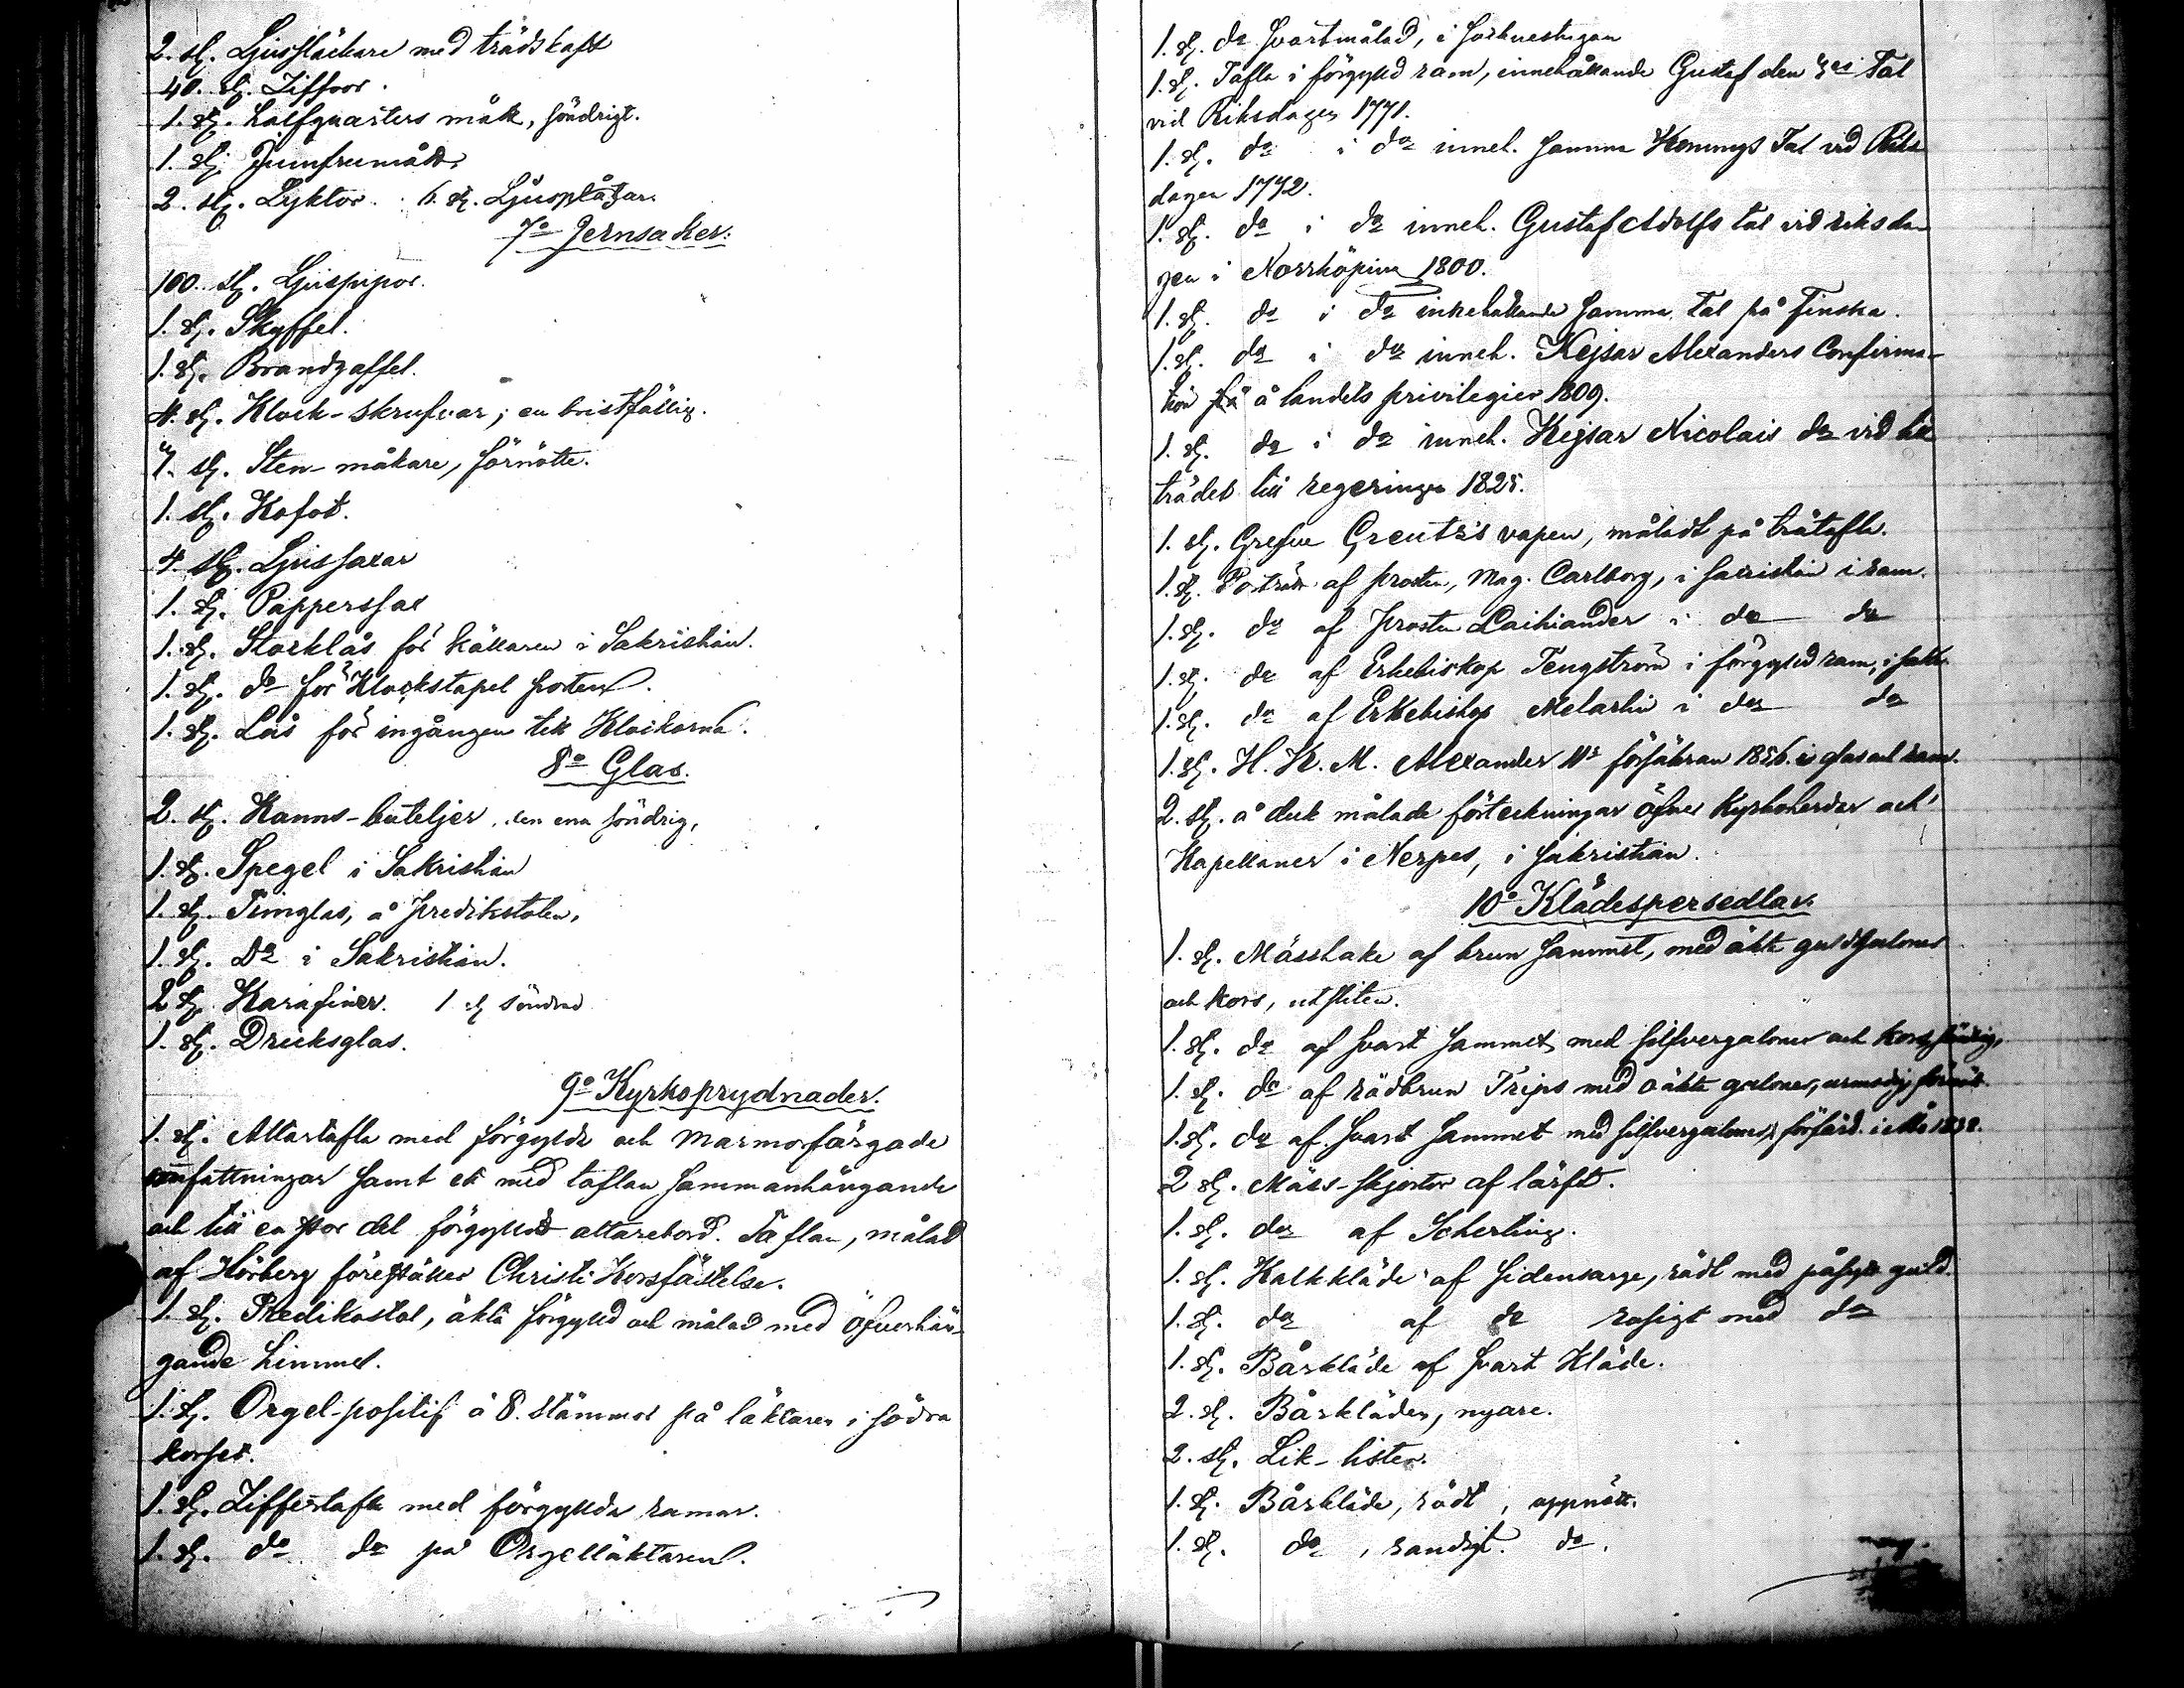 2. st. Ljussläckare med trädskaft
40. st. Ziffror.
1. st. halfquarters mått, söndrigt.
1. st. Jumfrumått.
2. st. Lyktor. 6. st. Ljusplåtar.
7o Jernsaker.
100. st. Ljuspipor.
1. st. Skyffel.
1. st. Brandgaffel.
4. st. Klock-skrufvar; en bristfällig.
7. st. Sten-måkare, förnötte.
1. st. Kofot.
4 st. Ljussaxar
1. st. Papperssax
1. st. Stocklås för källaren i Sakristian.
1. st. do för Klockstapel porten.
1. st. Lås för ingången till Klockorna.
8o Glas.
2. st. Kanns-buteljer, den ena söndrig,
1. st. Spegel i Sakristian
1. st. Timglas, å predikstolen,
1. st. Do i Sakristian.
2 st. Karafiner. 1 st söndrad
1. st. Dricksglas.
9o Kyrkoprydnader.
1. st. Altartafla med förgyllda och marmorfärgade
omfattningar samt ett med taflan sammanhängande
och till en stor del förgylldt altarebord. Taflan, målad
af Hörberg föreställer Christi Korsfästelse.
1. st. Predikostol, äkta förgylld och målad med öfverhän-
gande himmel.
1. st. Orgel-positif å 8. stämmor på läktaren i södra
korset.
1. st. Ziffertafla med förgyllda ramar.
1. st. do do på Orgelläktaren.
1. st. do svartmålad, i
1. st. Tafla i förgylld ram, innehållande Gustaf den 3es Tal
vid Riksdagen 1771.
1. st. do i do inneh. samma Konungs Tal vid Riks
dagen 1772.
1. st. do i do inneh. Gustaf Adolfs tal vid riksda
gen i Norrköping 1800.
1. st. do i do innehållande samma tal på Finska.
1. st. do i do inneh. Kejsar Alexanders Confirma-
tion på å landets privilegier 1809.
1. st. do i do inneh. Kejsar Nicolais do vid till
trädet till regeringen 1825.
1. st. Grefve Creutz's vapen, måladt på trätafla.
1. st. Porträtt af prosten, Mag. Carlborg, i sacristian i ram.
1. st. do af prosten Laihiander i do do
1. st. do af Erkebiskop Tengström i förgylld ram, i sakr.
1. st. do af Erkebiskop Melartin i do do
1. st. H. K. M. Alexander IIs försäkran 1856. i glas och ram.
2. st. å duk målade förteckningar öfver Kyrkoherdar och
Kapellaner i Nerpes, i sakristian.
10o Klädespersedlar.
1. st. Mässhake af brun sammet, med äkta guldgaloner
och kors, utsliten.
1. st. do af svart sammet, med silfvergaloner och kors, söndrig,
1. st. do af rödbrun Trips med oäkta galoner,
1. st. do af svart sammet med silfvergaloner, förfärd. i
2 st. Mäss-skjortor af lärft.
1. st. do af Scherting.
1. st. Kalkkläde af sidensarge, rödt med påsydt guld.
1. st. do af do rosigt med do
1. st. Bårkläde af svart Kläde.
2. st. Bårkläden, nyare.
2. st. Lik-kistor.
1. st. Bårkläde, rödt, uppnött.
1. st. do, randigt. do.